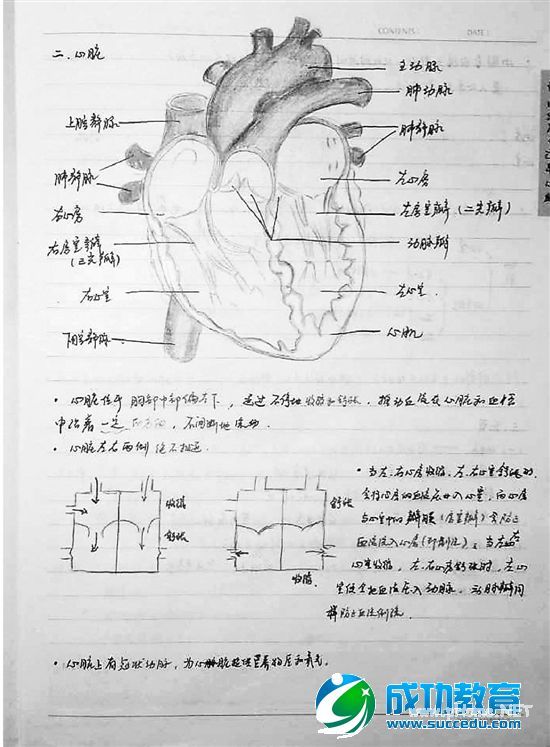 CONTENTS: DATE:
二.心脏
主动脉
肺动脉
上腔静脉
肺静脉
肺静脉
左心房
右心房
左房室瓣（二尖瓣）
右房室瓣
（三尖瓣）
动脉瓣
右心室
左心室
下腔静脉
心肌
· 心脏位于胸部中部偏左下，通过不停地收缩和舒张，推动血液在心脏和血管
中沿着一定的方向，不间断地流动.
· 心脏左右两侧绝不相通.
收缩
舒张
舒张
收缩
· 当左.右心房收缩，左.右心室舒张时，
会将心房的血液压入心室，而心房
与心室中的瓣膜（房室瓣）会防止
血液流入心房（即倒流）；当左.右
心室收缩，左.右心房舒张时，左心
室使会把血液压入动脉，动脉瓣
防止血液倒流.
· 心脏上有冠状动脉，为心脏提供营养物质和氧气.
成功教育
www.pthxx.NET
www.succedu.com